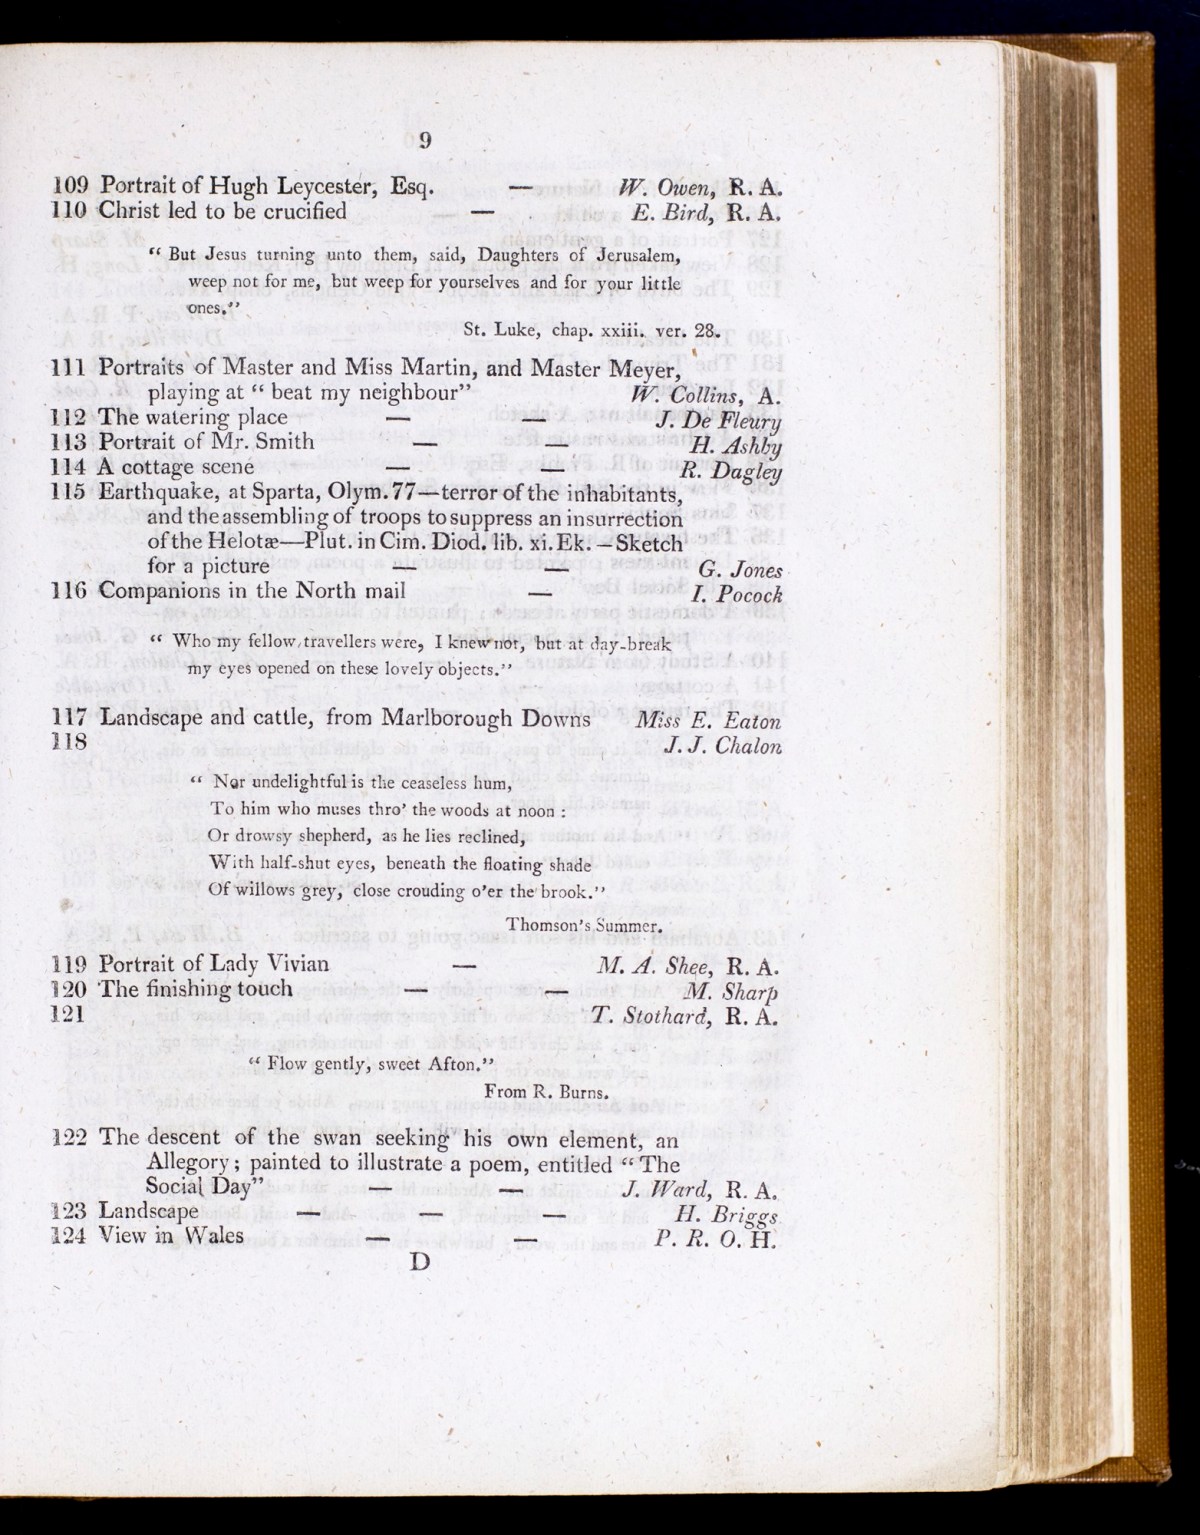 9
109 Portrait of Hugh Leycester, Esq. — W. Owen, R. A.
110 Christ led to be crucified — E. Bird, R. A.
“ But Jesus turning unto them, said, Daughters of Jerusalem,
weep not for me, but weep for yourselves and for your little
ones.”
St. Luke, chap. xxiii. ver. 28.
111 Portraits of Master and Miss Martin, and Master Meyer,
playing at “ beat my neighbour” W. Collins, A.
112 The watering place — — J. De Fleury
113 Portrait of Mr. Smith — — H. Ashby
114 A cottage scene — — R. Dagley
115 Earthquake, at Sparta, Olym. 77—terror of the inhabitants,
and the assembling of troops to suppress an insurrection
of the Helotæ—Plut. in Cim. Diod. lib. xi. Ek. — Sketch
for a picture — — G. Jones
116 Companions in the North mail — I. Pocock
“ Who my fellow travellers were, I knew not, but at day-break
my eyes opened on these lovely objects.”
117 Landscape and cattle, from Marlborough Downs Miss E. Eaton
118 J. J. Chalon
“ Nor undelightful is the ceaseless hum,
To him who muses thro’ the woods at noon :
Or drowsy shepherd, as he lies reclined,
With half-shut eyes, beneath the floating shade
Of willows grey, close crouding o’er the brook.”
Thomson’s Summer.
119 Portrait of Lady Vivian — M. A. Shee, R. A.
120 The finishing touch — — M. Sharp
121 T. Stothard, R. A.
“ Flow gently, sweet Afton.”
From R. Burns.
122 The descent of the swan seeking his own element, an
Allegory ; painted to illustrate a poem, entitled “ The
Social Day” — — J. Ward, R. A.
123 Landscape — — — H. Briggs
124 View in Wales — — P. R. O. H.
D